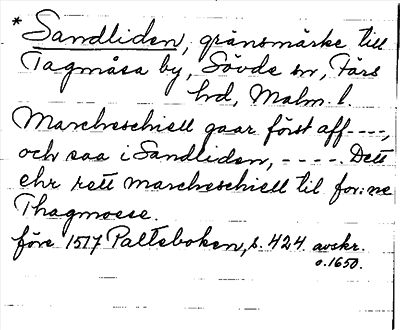 * Sandliden, gränsmärke till
Tagmåsa by, Sövde sn, Färs
hd, Malm. l.
Marcheschiell gaar först aff ----,
och saa i Sandliden, - - - -. Dett
ehr rett marcheschiell til for:ne
Thagmosse.
före 1517 Palteboken, s. 424. avskr.
o. 1650.